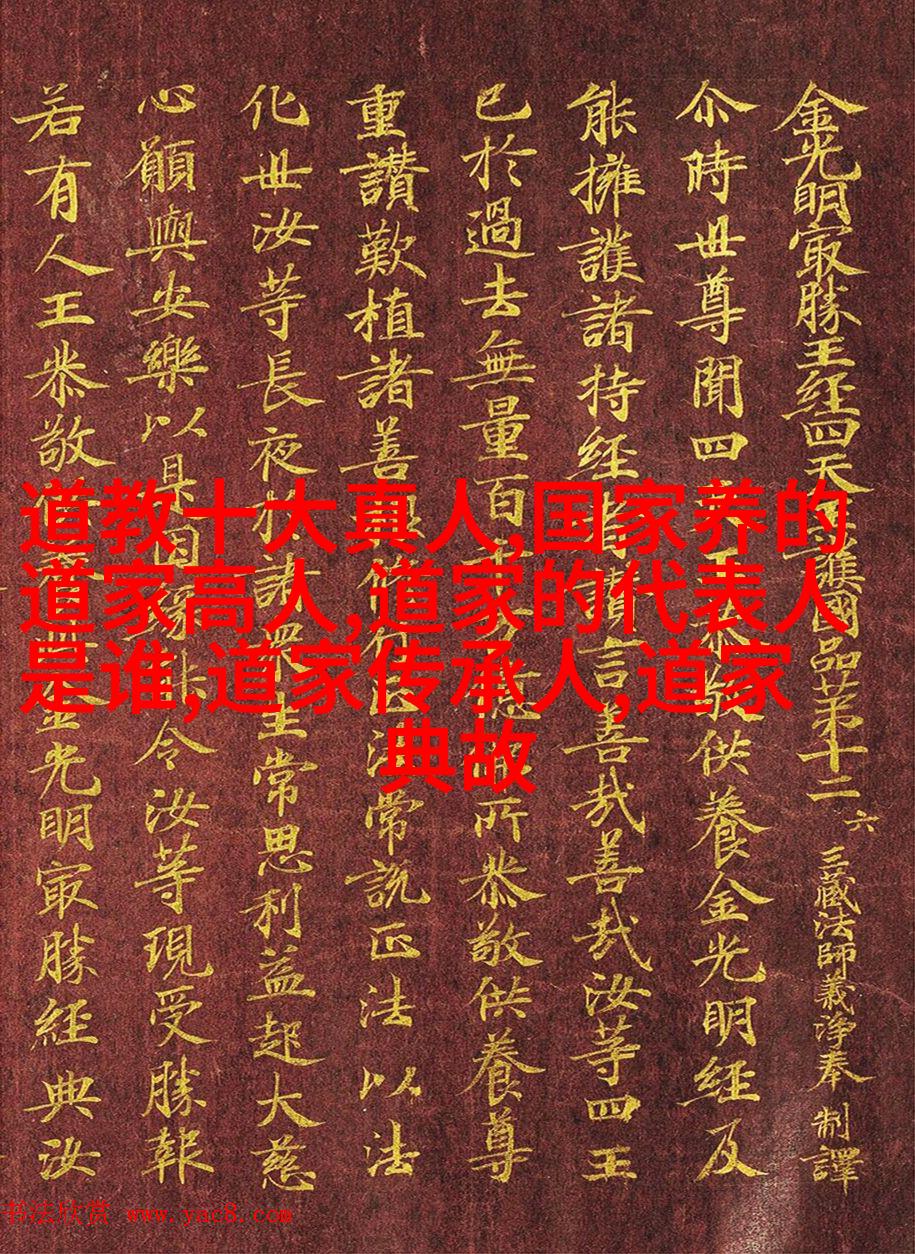 道教十大真人,国家养的
道家高人,道家的代表人
是谁,道家传承人,道家
典故
金光明㝡勝王経四天王護國品苐十二 六 三藏法師義淨奉 制譯
尒時世尊聞四天王供養金光明経及
能擁護諸持経者讃言善㢤善㢤汝等四王
已於過去無量百所恭敬供養尊
重讚歎植諸善根修行正法常說正法以法
化世汝等長夜於諸衆生常思利益起大慈
心願與安樂以是因緣令汝等現受勝報
若有人王恭敬金光明㝡勝経典汝
书法欣赏 www.yac8.com